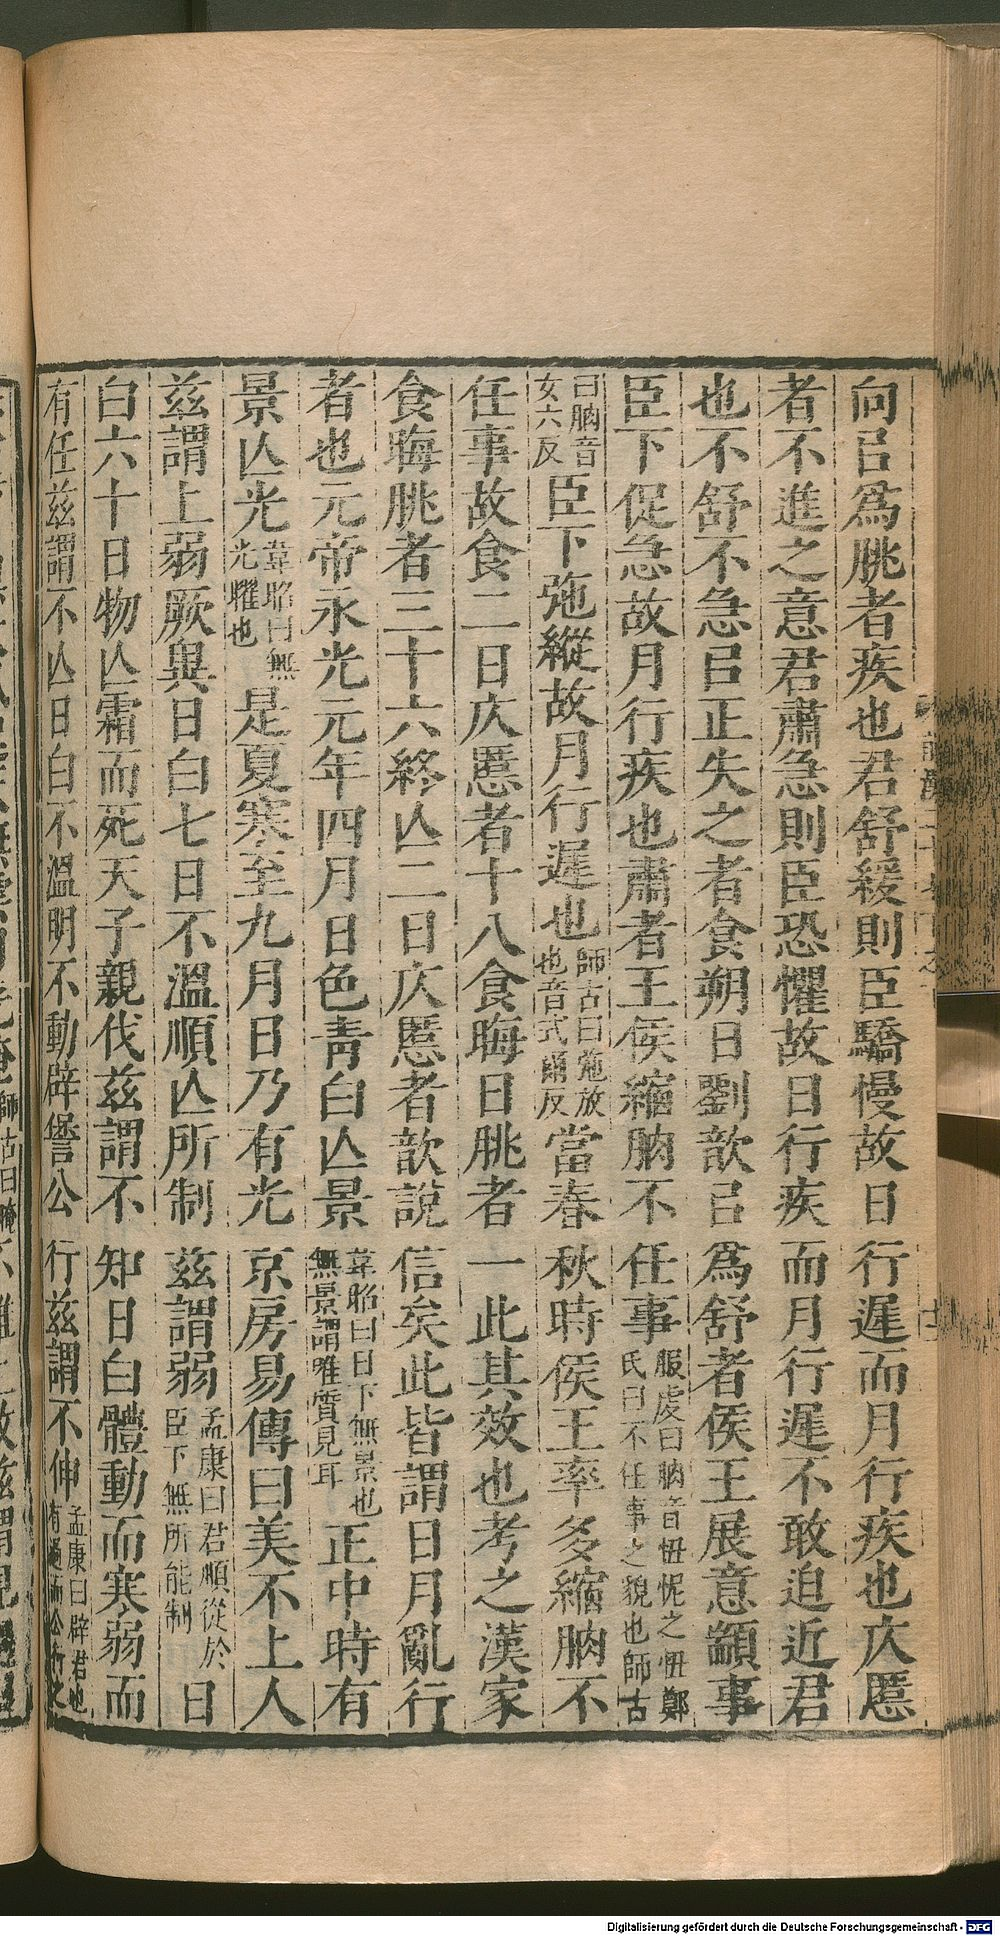 向㠯爲朓者疾也君舒緩則臣驕慢故日行遲而月行疾也仄慝
者不進之意君肅急則臣恐懼故日行疾而月行遲不敢迫近君
也不舒不急㠯正失之者食朔日劉歆㠯爲舒者侯王展意顓事
臣下促急故月行疾也肅者王侯縮朒不任事服虔曰朒音忸怩之忸鄭
氏曰不任事之貌也師古
曰朒音
女六反臣下弛縱故月行遲也師古曰弛放
也音式爾反當春秋時侯王率多縮朒不
任事故食二日仄慝者十八食晦日朓者一此其效也考之漢家
食晦朓者三十六終亾二日仄慝者歆說信矣此皆謂日月亂行
者也元帝永光元年四月日色靑白亾景韋昭曰日下無景也
無景謂唯質見耳正中時有
景亾光韋昭曰無
光耀也是夏寒至九月日乃有光京房易傳曰美不上人
茲謂上弱厥異日白七日不溫順亾所制茲謂弱孟康曰君順從於
臣下無所能制日
白六十日物亾霜而死天子親伐茲謂不知日白體動而寒弱而
有任茲謂不亾日白不溫明不動辟諐公行茲謂不伸孟康曰辟君也
有過而公行之
Digitalisierung gefördert durch die Deutsche Forschungsgemeinschaft - DFG